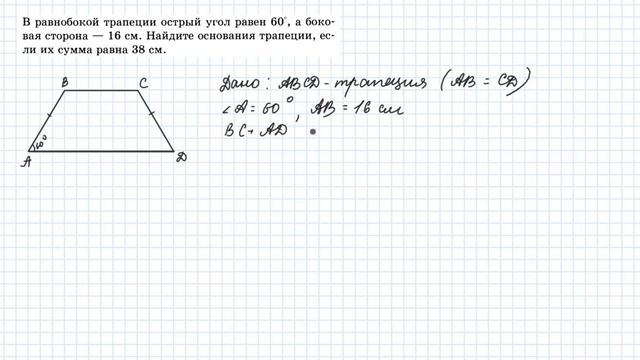 В равнобокой трапеции острый угол равен 60°, а боко-
вая сторона — 16 см. Найдите основания трапеции, ес-
ли их сумма равна 38 см.
B C
Дано: ABCD - трапеция (AB = CD)
∠A = 60°, AB = 16 см
BC + AD
60°
A D